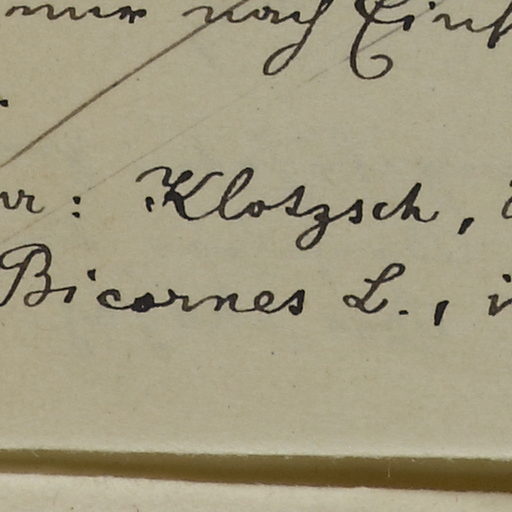 nur nach Einf
ur: Klotzsch,
Bicornes L., i